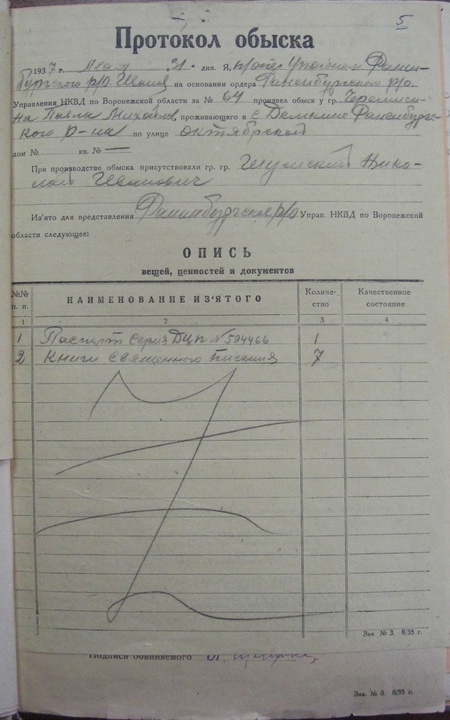 5
Протокол обыска
1937 г. мая 31 дня. Я,
бургского р/о на основании ордера р/о
Управления НКВД по Воронежской области за № 64 произвел обыск у гр.
на проживающего в с
кого р-на по улице октябрской
дом № — кв. № —
При производстве обыска присутствовали гр. гр. Шумский Нико-
лай Иванович
Из'ято для представления р/о Управ. НКВД по Воронежской
области следующее:
ОПИСЬ
вещей, ценностей и документов
№№ п. п. НАИМЕНОВАНИЕ ИЗ'ЯТОГО Количе-ство Качественное состояние
1 2 3 4
1 Паспорт серия № 594466 1
2 Книги священного писания 7
Зак. № 3. 8/35 г.
Подпись обвиняемого
Зак. № 3. 8/35 г.